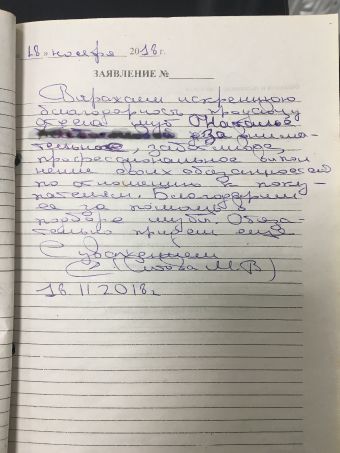 « 18 » ноября 2018 г.
ЗАЯВЛЕНИЕ №
Выражаем искреннюю
благодарность продавцу
отдела шуб Наталье
за внима-
тельное, заботливое,
профессиональное выпол
нение своих обязанностей
по отношению к поку-
пателям. Благодарим
ее за помощь в
подборе шубы. Обяза-
тельно придем еще
С уважением
М.В)
18.11.2018г